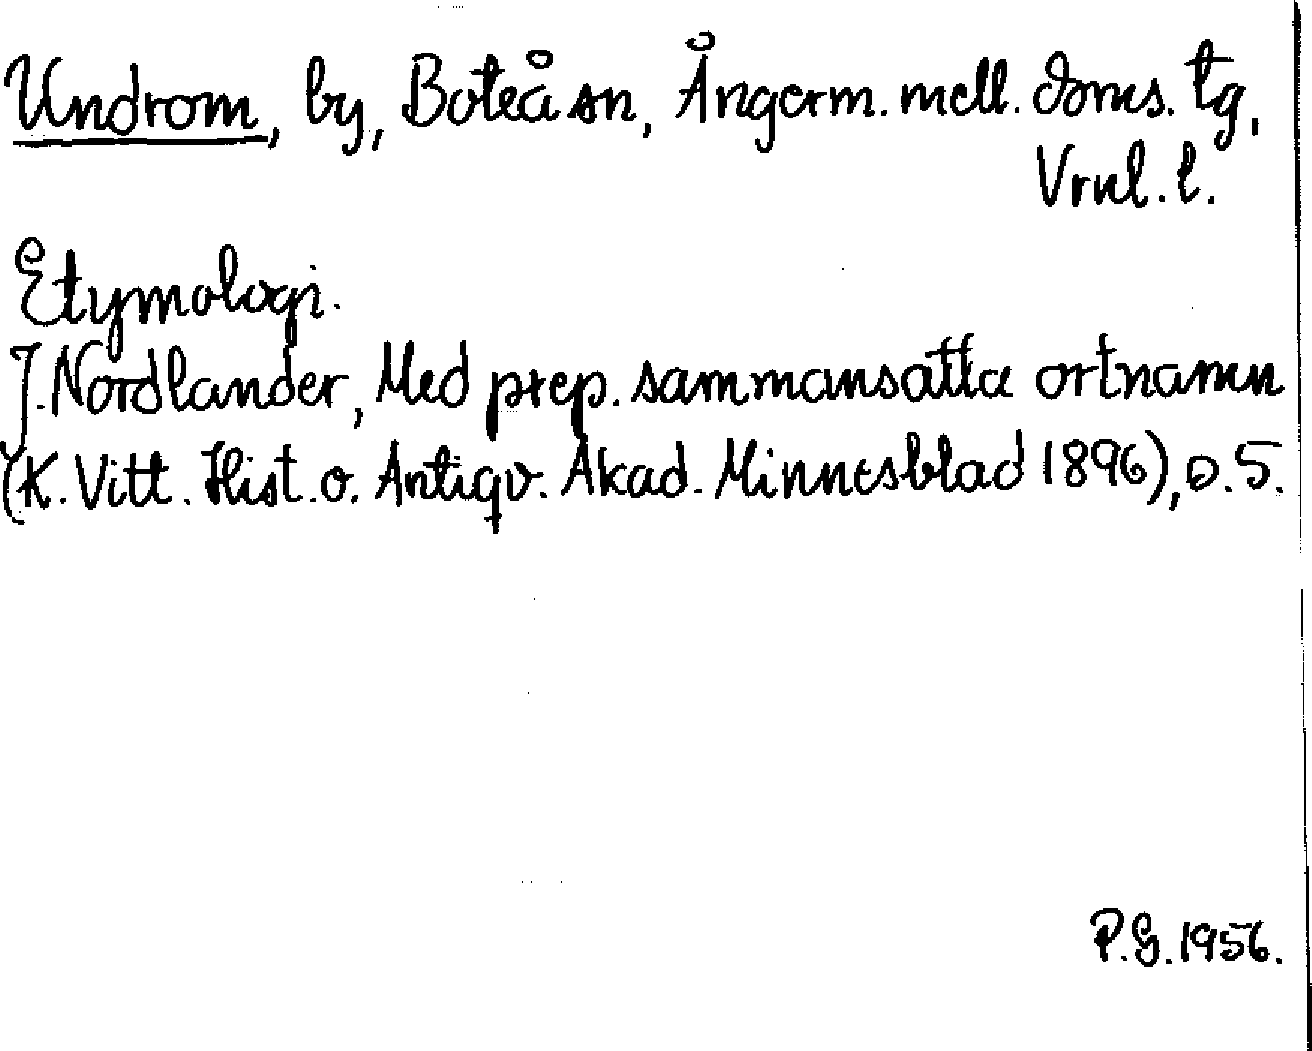 Undrom, by, Boteå sn, Ångerm. mell. doms. tg,
Vrnl. l.
Etymologi.
J. Nordlander, Med prep. sammansatta ortnamn
(K. Vitt. Hist. o. Antiqv. Akad. Minnesblad 1896), s. 5.
P.G. 1956.